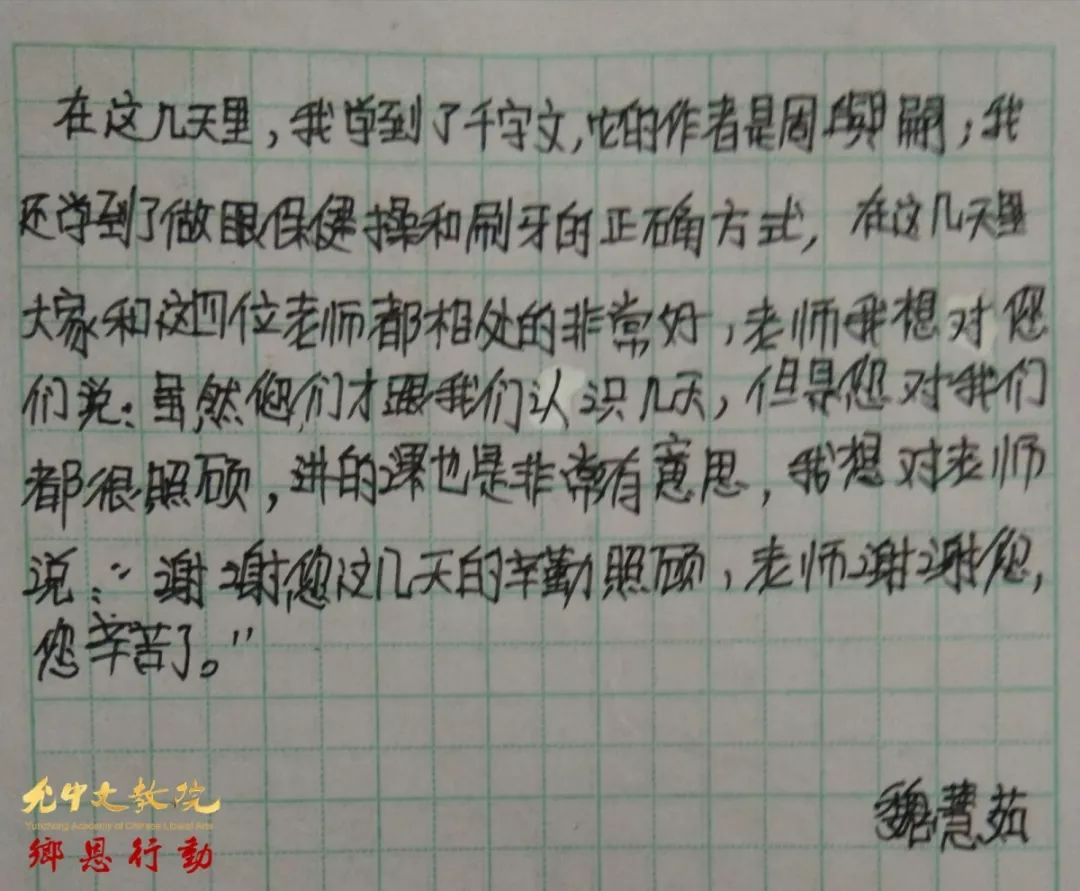 在这几天里，我学到了千字文，它的作者是周兴嗣，我
还学到了做眼保健操和刷牙的正确方式，在这几天里
大家和这四位老师都相处的非常好，老师我想对您
们说：虽然您们才跟我们认识几天，但是您对我们
都很照顾，讲的课也是非常有意思，我想对老师
说：“谢谢您这几天的辛勤照顾，老师谢谢您，
您辛苦了。”
魏慧茹
允中文教院
Yunzhong Academy of Chinese Liberal Arts
鄉恩行動